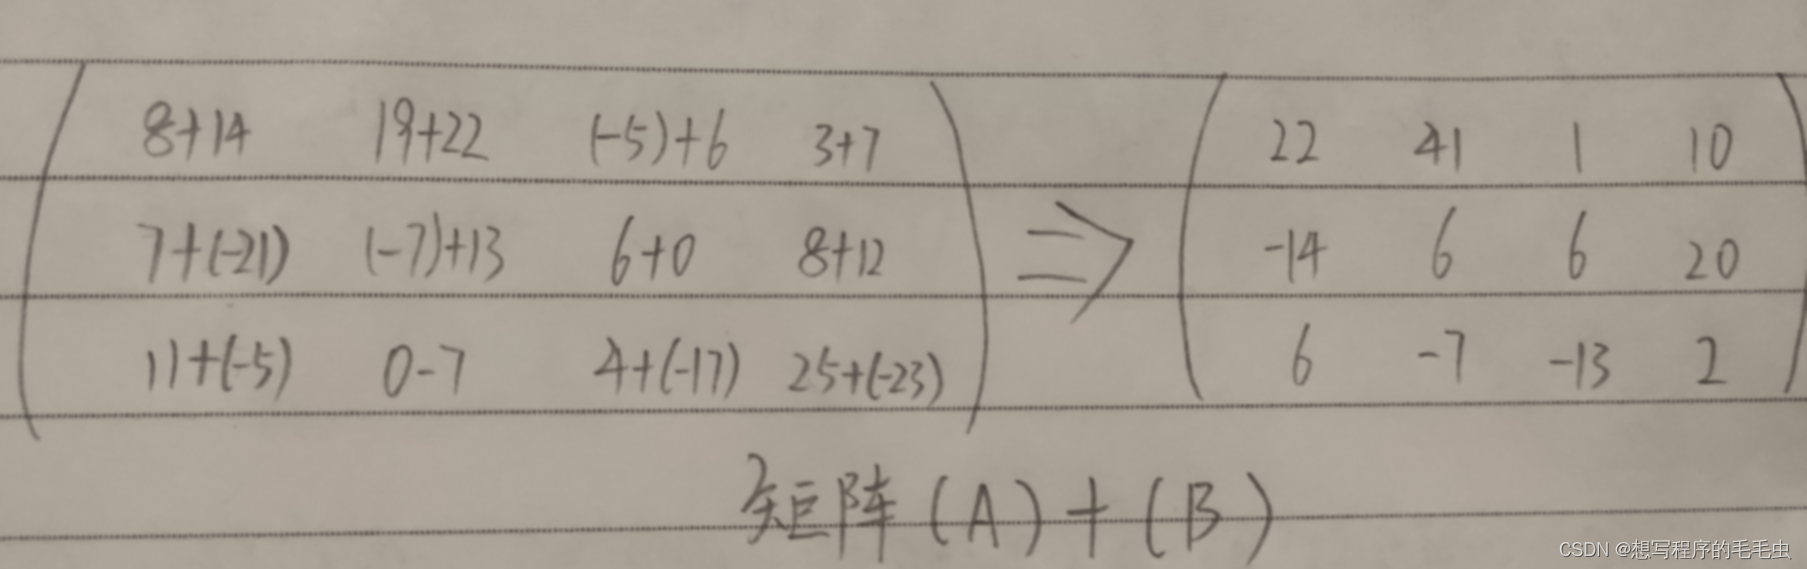 8+14 19+22 (-5)+6 3+7 22 41 1 10
7+(-21) (-7)+13 6+0 8+12 ⇒ -14 6 6 20
11+(-5) 0-7 4+(-17) 25+(-23) 6 -7 -13 2
矩阵(A)+(B)
CSDN @想写程序的毛毛虫